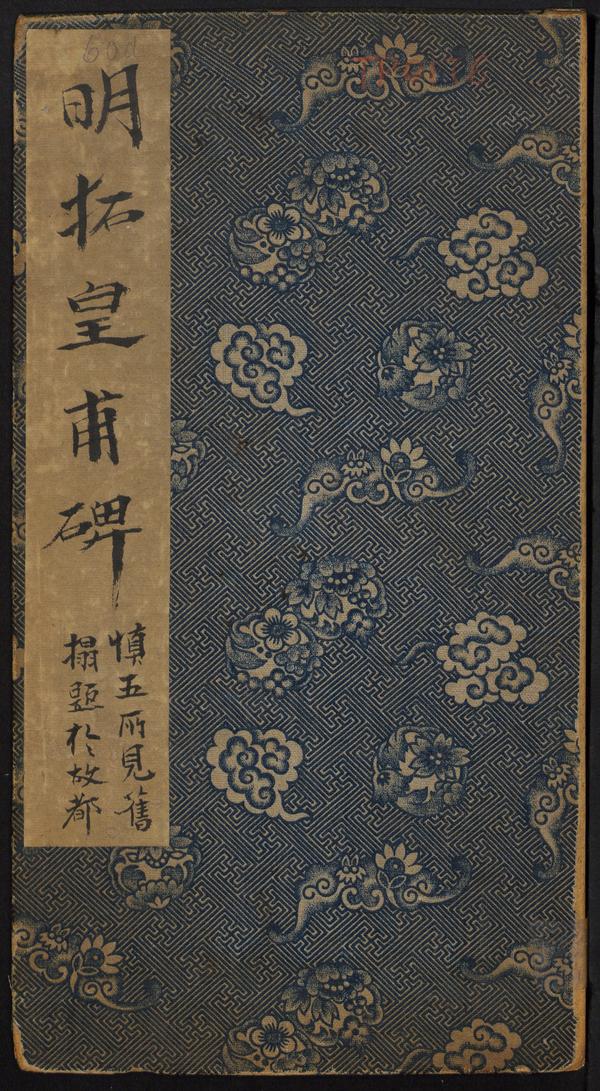 明拓皇甫碑
慎五所見舊
搨題於故都